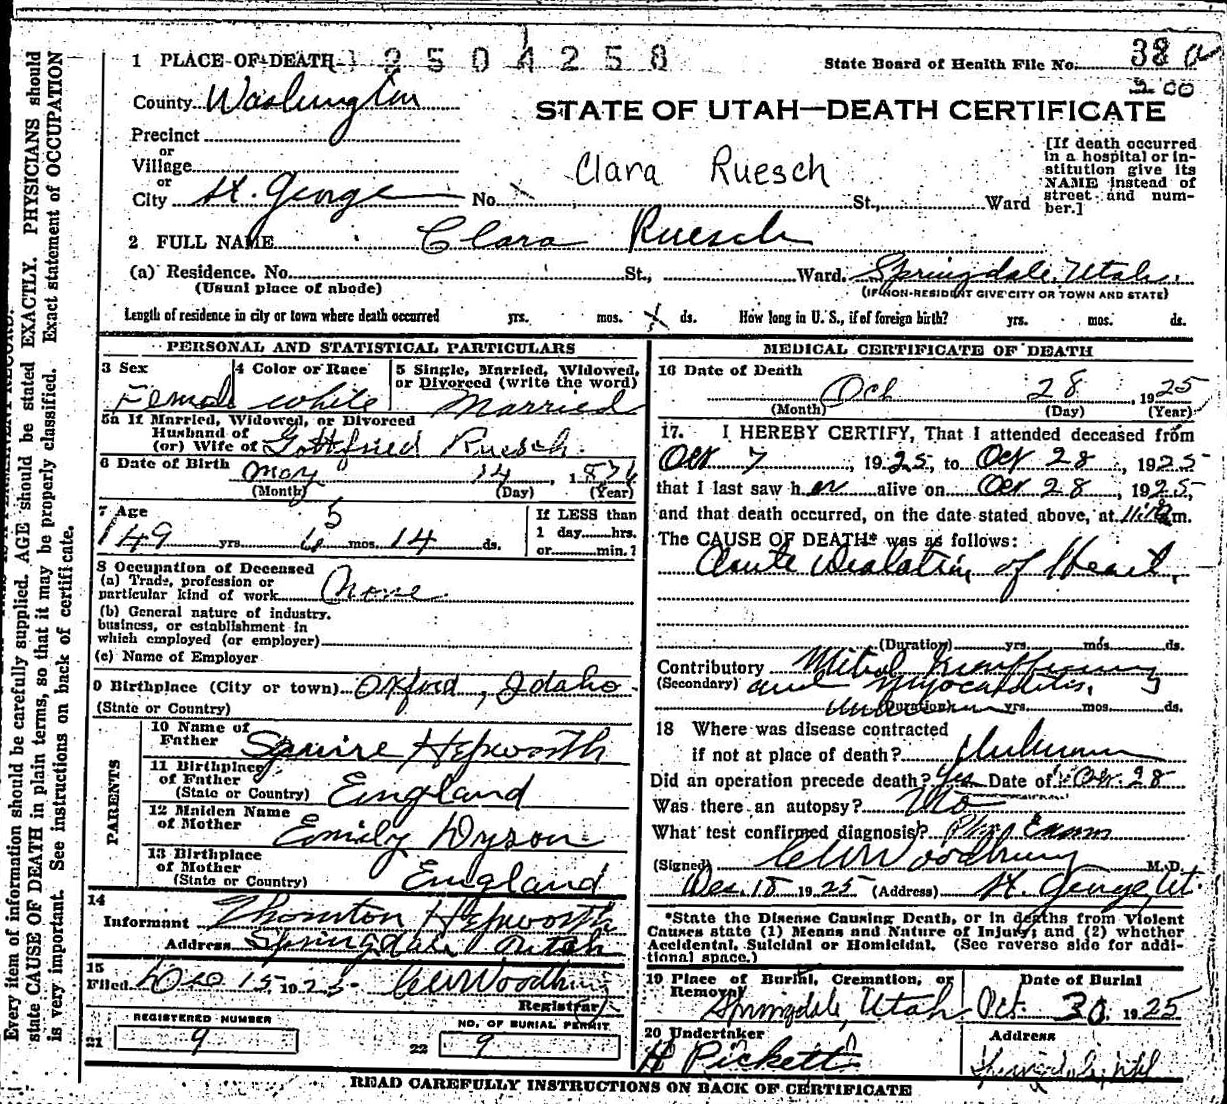 1 PLACE OF DEATH 2504258
State Board of Health File No. 38 a
200
County Washington
STATE OF UTAH—DEATH CERTIFICATE
Precinct
or
Village
or
City St. George No. St., Ward
Clara Ruesch
[If death occurred
in a hospital or in-
stitution give its
NAME instead of
street and num-
ber.]
2 FULL NAME Clara Ruesch
(a) Residence. No. St., Ward. Springdale, Utah.
(Usual place of abode)
(IF NON-RESIDENT GIVE CITY OR TOWN AND STATE)
Length of residence in city or town where death occurred yrs. mos. ds. How long in U. S., if of foreign birth? yrs. mos. ds.
PERSONAL AND STATISTICAL PARTICULARS
3 Sex
Female
4 Color or Race
white
5 Single, Married, Widowed,
or Divorced (write the word)
Married
5a If Married, Widowed, or Divorced
Husband of
(or) Wife of Gottfried Ruesch.
6 Date of Birth May 14, 1876
(Month) (Day) (Year)
7 Age 5
49 yrs. mos. 14 ds.
If LESS than
1 day hrs.
or min.?
8 Occupation of Deceased
(a) Trade, profession or
particular kind of work None
(b) General nature of industry,
business, or establishment in
which employed (or employer)
(c) Name of Employer
9 Birthplace (City or town) Oxford, Idaho
(State or Country)
PARENTS
10 Name of
Father Squire Hepworth
11 Birthplace
of Father
(State or Country) England
12 Maiden Name
of Mother Emily Dyson
13 Birthplace
of Mother
(State or Country) England
14
Informant Thornton Hepworth
Address Springdale Utah
15
Filed Dec 15, 1925 CCWoodbury
Registrar
REGISTERED NUMBER
21 9
NO. OF BURIAL PERMIT
22 9
MEDICAL CERTIFICATE OF DEATH
16 Date of Death
Oct 28, 1925
(Month) (Day) (Year)
17. I HEREBY CERTIFY, That I attended deceased from
Oct 7, 1925, to Oct 28, 1925
that I last saw her alive on Oct 28, 1925,
and that death occurred, on the date stated above, at m.
The CAUSE OF DEATH* was as follows:
Acute Dialation of Heart.
(Duration) yrs. mos. ds.
Contributory Mitral Insufficiency
(Secondary) and Myocarditis.
Unknown (Duration) yrs. mos. ds.
18 Where was disease contracted
if not at place of death? Unknown
Did an operation precede death? Yes Date of Oct. 28
Was there an autopsy? No
What test confirmed diagnosis? Phys Exam
(Signed) CCWoodbury M.D.
Dec. 15 1925 (Address) St. George Ut.
*State the Disease Causing Death, or in deaths from Violent
Causes state (1) Means and Nature of Injury; and (2) whether
Accidental, Suicidal or Homicidal. (See reverse side for addi-
tional space.)
19 Place of Burial, Cremation, or
Removal
Springdale, Utah
Date of Burial
Oct. 30. 1925
20 Undertaker
H Pickett
Address
READ CAREFULLY INSTRUCTIONS ON BACK OF CERTIFICATE
Every item of information should be carefully supplied. AGE should be stated EXACTLY. PHYSICIANS should
state CAUSE OF DEATH in plain terms, so that it may be properly classified. Exact statement of OCCUPATION
is very important. See instructions on back of certificate.